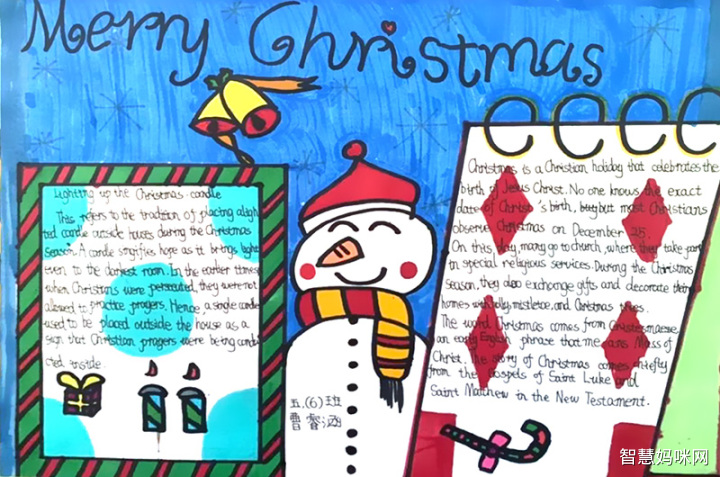 Merry Christmas
Lighting up the Christmas candle
This refers to the tradition of placing a ligh
ted candle outside houses during the Christmas
season. A candle signifies hope as it brings light
even to the darkest room. In the earlier times
when Christians were persecuted, they were not
allowed to practice prayers. Hence a single candle
used to be placed outside the house as a
sign that Christian prayers were being condu
cted inside.
五.(6)班
曹睿涵
Christmas is a Christian holiday that celebrates the
birth of Jesus Christ. No one knows the exact
date of Christ's birth, but most Christians
observe Christmas on December 25.
On this day, many go to church, where they take part
in special religious services. During the Christmas
season, they also exchange gifts and decorate their
homes with holly, mistletoe, and Christmas trees.
The word Christmas comes from
an early English phrase that means Mass of
Christ. The story of Christmas comes chiefly
from the Gospels of Saint Luke and
Saint Matthew in the New Testament.
智慧妈咪网